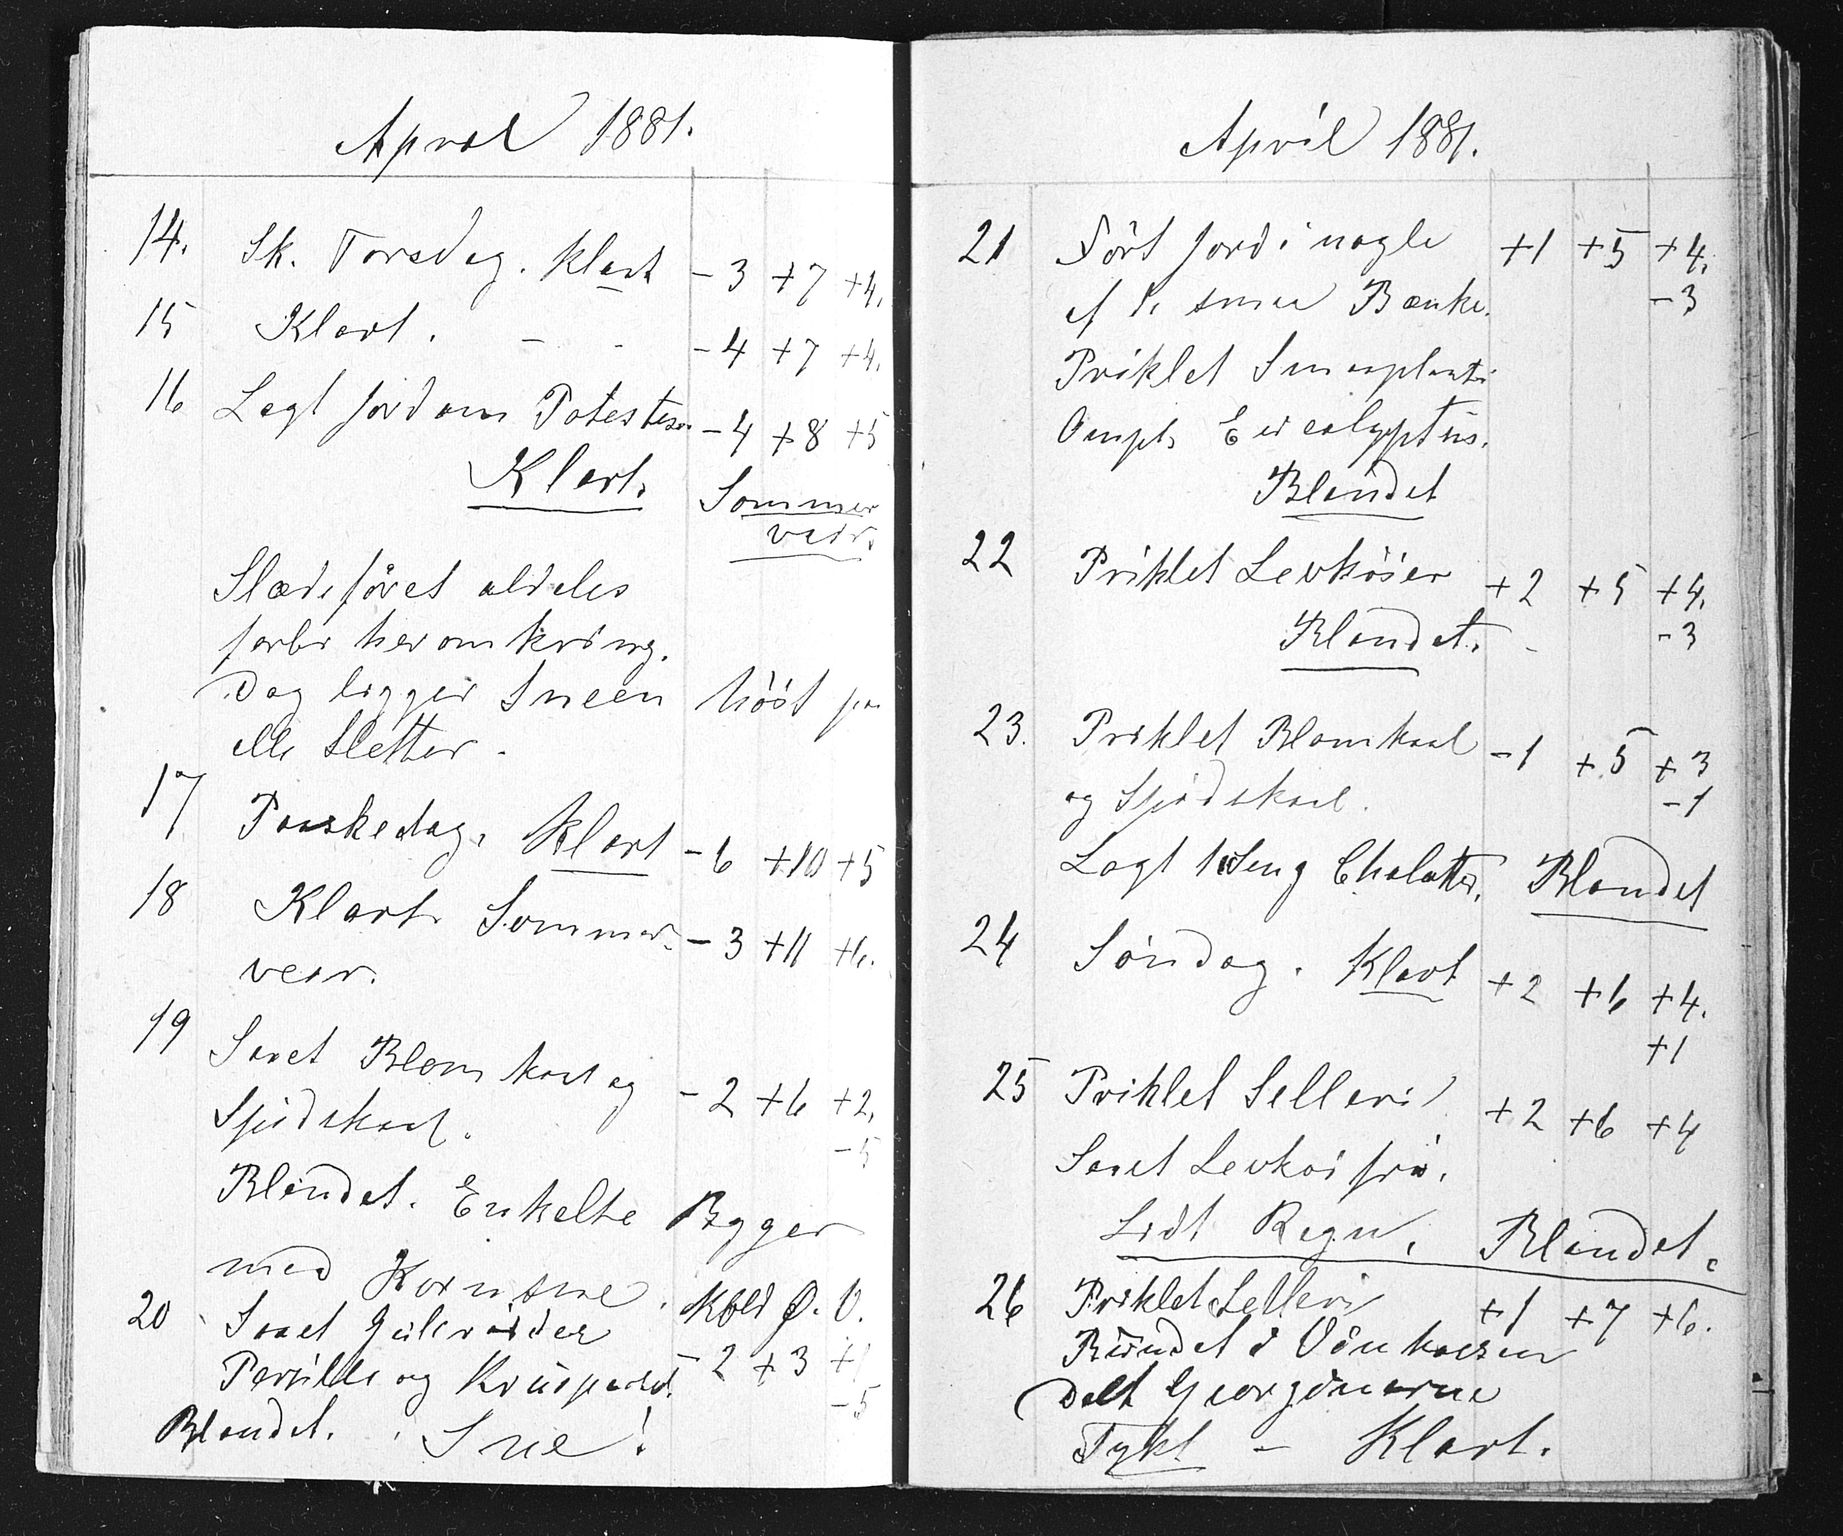 April 1881.
14. Sk. Torsdag. Klart -3 +7 +4.
15 Klart. - - -4 +7 +4.
16 Lagt Jord om Potettes. -4 +8 +5
Klart. Sommer
veir.
Slædeföret aldeles
forbi heromkring.
Dog ligger Sneen höit paa
alle Sletter.
17 Paaskedag. Klart -6 +10 +5
18 Klart. Sommer- -3 +11 +6.
veir.
19 Saaet Blomkaal og
Spidskaal. -2 +6 +2.
-5
Blandet. Enkelte Bygger
med Kornsne. Kold Ø. V.
20 Saaet Gulerödder
Persille og -2 +3 +1
-5
Blandet. Sne!
April 1881.
21 Fört Jord i nogle +1 +5 +4.
af de smaa Bænke. -3
Priklet Smaaplanter
Ompl. Eucalyptus.
Blandet
22 Priklet Levköier +2 +5 +4.
Blandet. -3
23. Priklet Blomkaal -1 +5 +3
og Spidskaal. -1
Lagt 1 Seng Chalotter. Blandet
24 Söndag. Klart +2 +6 +4.
+1
25 Priklet Selleri +2 +6 +4
Saaet Levkoifrö.
Lidt Regn. Blandet.
26 Priklet Selleri +1 +7 +6.
Bundet i Vinkassen
Delt Georginerne
Tykt - Klart.